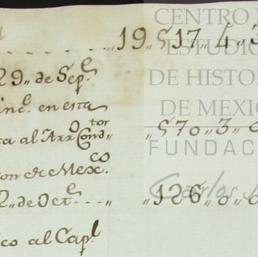 19,,517,,4,,3
29,, de Sep.e
inc.e en esta
ta al Arr.or Cond.tor ,,570,,3,,
on de Mex.co
2,, de Oct.e ,,126,,0,,0
ico al Cap.l
CENTRO
ESTUDIO
DE HISTOR
DE MEXIC
FUNDAC
Carlos